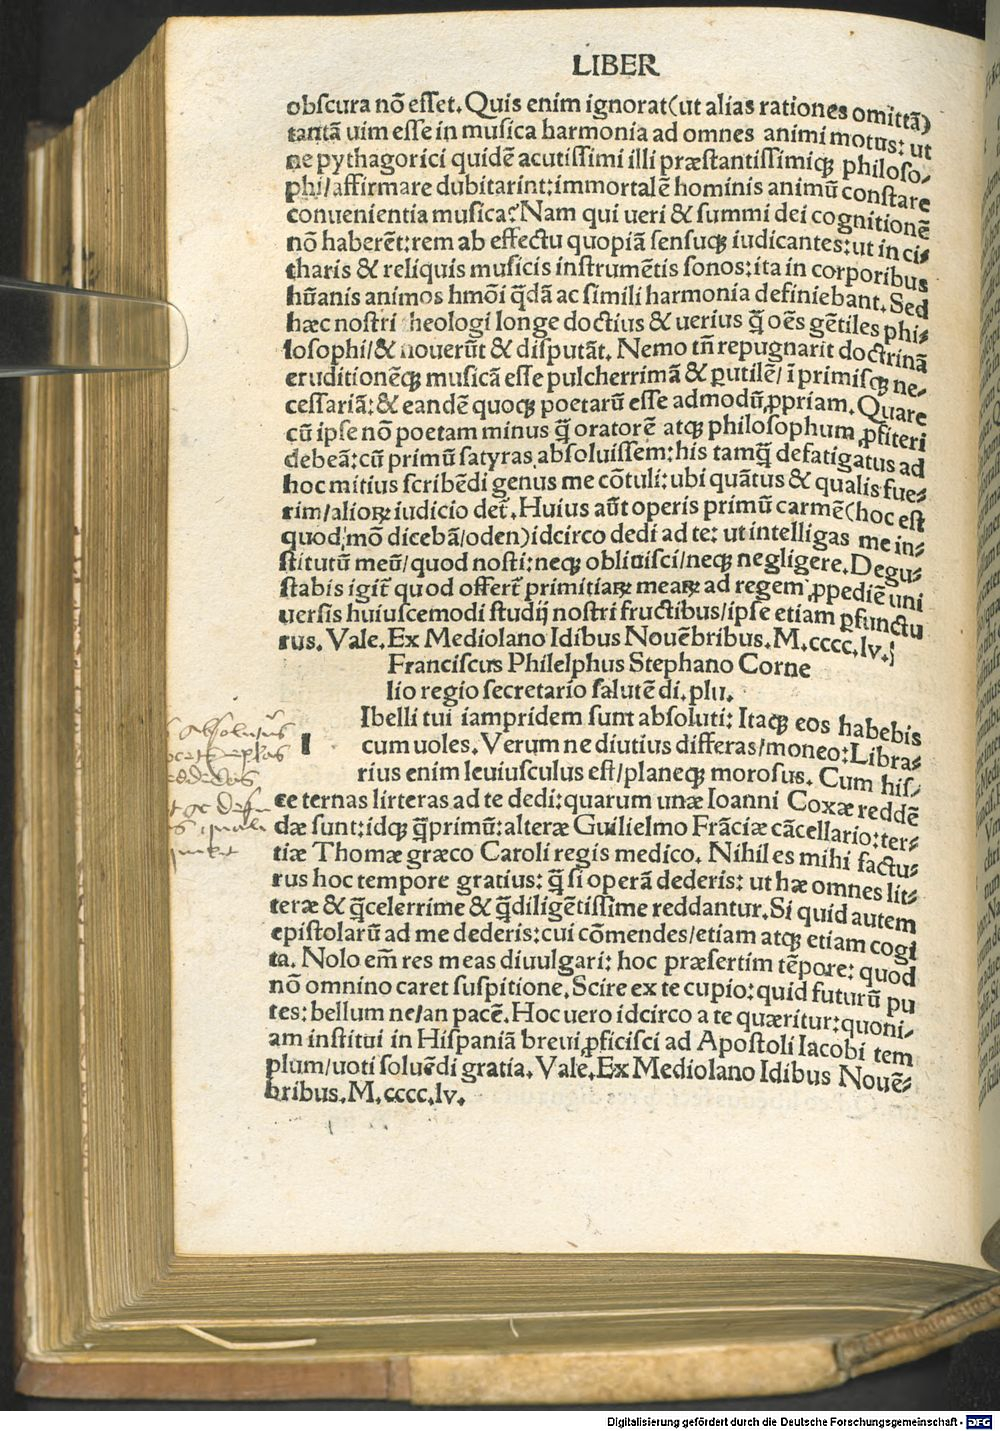 LIBER
obscura nō esset. Quis enim ignorat (ut alias rationes omittā)
tantā uim esse in musica harmonia ad omnes animi motus: ut
ne pythagorici quidē acutissimi illi præstantissimiqꝫ philoso⸗
phi/affirmare dubitarint: immortalē hominis animū constare
conuenientia musica? Nam qui ueri & summi dei cognitionē
nō haberēt: rem ab effectu quopiā sensuqꝫ iudicantes: ut in ci⸗
tharis & reliquis musicis instrumētis sonos: ita in corporibus
hūanis animos hmōi q̄dā ac simili harmonia definiebant. Sed
hæc nostri heologi longe doctius & uerius q̄ oēs gētiles phi⸗
losophi/& nouerūt & disputāt. Nemo tn̄ repugnarit doctrinā
eruditionēqꝫ musicā esse pulcherrimā & ꝑutilē/ ī primisqꝫ ne⸗
cessariā: & eandē quoqꝫ poetarū esse admodū ꝓpriam. Quare
cū ipse nō poetam minus q̄ oratorē atqꝫ philosophum ꝓfiteri
debeā: cū primū satyras absoluissem: his tamq̄ defatigatus ad
hoc mitius scribēdi genus me cōtuli: ubi quātus & qualis fue⸗
rim/alioꝝ iudicio det̄. Huius aūt operis primū carmē (hoc est
quod mō dicebā/oden) idcirco dedi ad te: ut intelligas me in⸗
stitutū meū/quod nosti: neqꝫ obliuisci/neqꝫ negligere. Degu⸗
stabis igit̄ quod offert̄ primitiaꝝ meaꝝ ad regem ꝓpediē uni
uersis huiuscemodi studij nostri fructibus/ipse etiam ꝑfunctu
rus. Vale. Ex Mediolano Idibus Nouēbribus. M. cccc. lv.
Franciscus Philelphus Stephano Corne
lio regio secretario salutē di. plu.
l Ibelli tui iampridem sunt absoluti: Itaqꝫ eos habebis
cum uoles. Verum ne diutius differas/moneo: Libra⸗
rius enim leuiusculus est/planeqꝫ morosus. Cum his⸗
ce ternas lirteras ad te dedi: quarum unæ Ioanni Coxæ reddē
dæ sunt: idqꝫ q̄primū: alteræ Guilielmo Frāciæ cācellario: ter⸗
tiæ Thomæ græco Caroli regis medico. Nihil es mihi factu⸗
rus hoc tempore gratius: q̄ si operā dederis: ut hæ omnes lit⸗
teræ & q̄celerrime & q̄diligētissime reddantur. Si quid autem
epistolarū ad me dederis: cui cōmendes/etiam atqꝫ etiam cogi
ta. Nolo em̄ res meas diuulgari: hoc præsertim tēpore: quod
nō omnino caret suspitione. Scire ex te cupio: quid futurū pu
tes: bellum ne/an pacē. Hoc uero idcirco a te quæritur: quoni⸗
am institui in Hispaniā breui ꝓficisci ad Apostoli Iacobi tem
plum/uoti soluēdi gratia. Vale. Ex Mediolano Idibus Nouē⸗
bribus. M. cccc. lv.
Digitalisierung gefördert durch die Deutsche Forschungsgemeinschaft - DFG